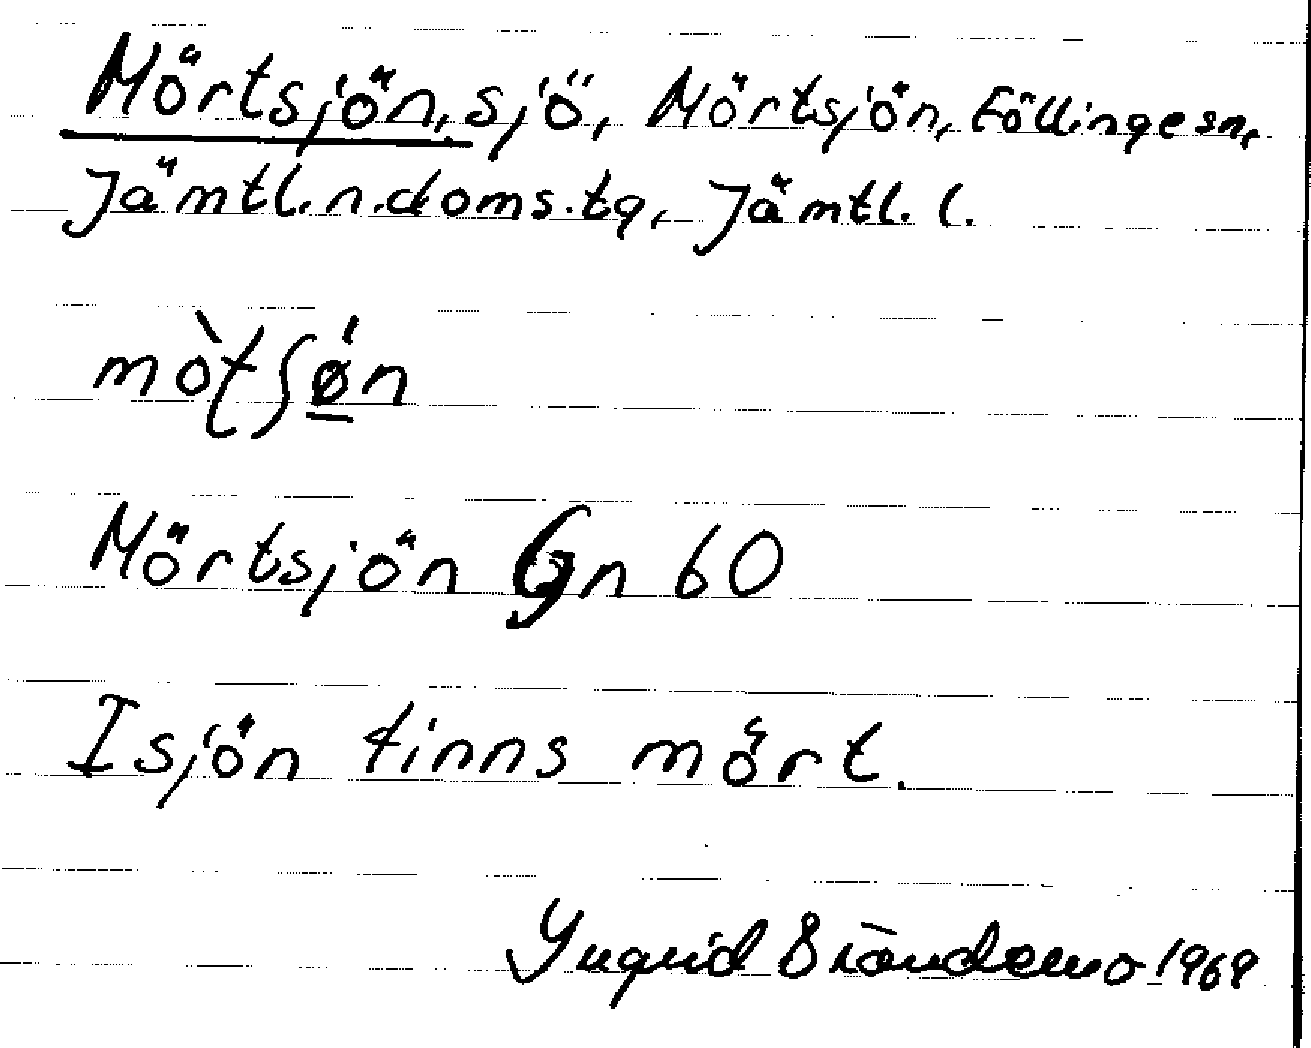 Mörtsjön, sjö, Mörtsjön, Föllinge sn,
Jämtl. n. doms. tg, Jämtl. l.
mòtʃǿ̲n
Mörtsjön Gn 60
I sjön finns mört.
Ingrid Brändemo 1969